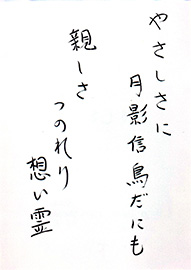 やさしさに
月影信鳥だにも
親しさ
つのれり
想い霊